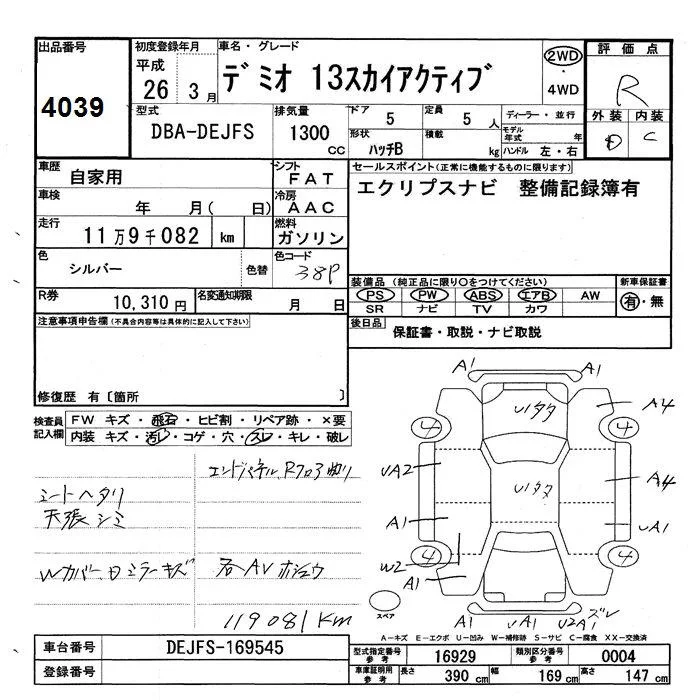 出品番号 4039
初度登録年月 平成 26年 3月
車名・グレード デミオ 13スカイアクティブ
2WD・4WD
評価点 R
外装 D 内装 C
型式 DBA-DEJFS
排気量 1300 CC
ドア 5
形状 ハッチB
定員 5 人
積載 kg
ディーラー・並行
モデル年式 年
ハンドル 左・右
車歴 自家用
シフト FAT
車検 年 月( 日)
冷房 AAC
走行 11万9千082 km
燃料 ガソリン
色 シルバー 色替
色コード 38P
R券 10,310円
名変通知期限 月 日
セールスポイント(正常に機能するものに限ります)
エクリプスナビ 整備記録簿有
装備品 (純正品に限り○をつけてください)
PS PW ABS エアB AW
SR ナビ TV カワ
新車保証書 有・無
後日品 保証書・取説・ナビ取説
注意事項申告欄(不具合内容等は具体的に記入して下さい)
修復歴 有〔箇所 〕
検査員記入欄
FW キズ・飛石・ヒビ割・リペア跡・×要
内装 キズ・汚レ・コゲ・穴・スレ・キレ・破レ
シートヘタリ
天張シミ
119081km
A1 A1
U1タタ
A4
4 4
UA2
U1タタ
A4
A1
UA1
W2
4 4
A1
スペア
A1 UA1 U2A1 ズレ
A-キズ E-エクボ U-凹み W-補修跡 S-サビ C-腐食 XX-交換済
車台番号 DEJFS-169545
登録番号
型式指定番号 参考 16929
類別区分番号 参考 0004
車庫証明用 参考 長さ 390 cm 幅 169 cm 高さ 147 cm